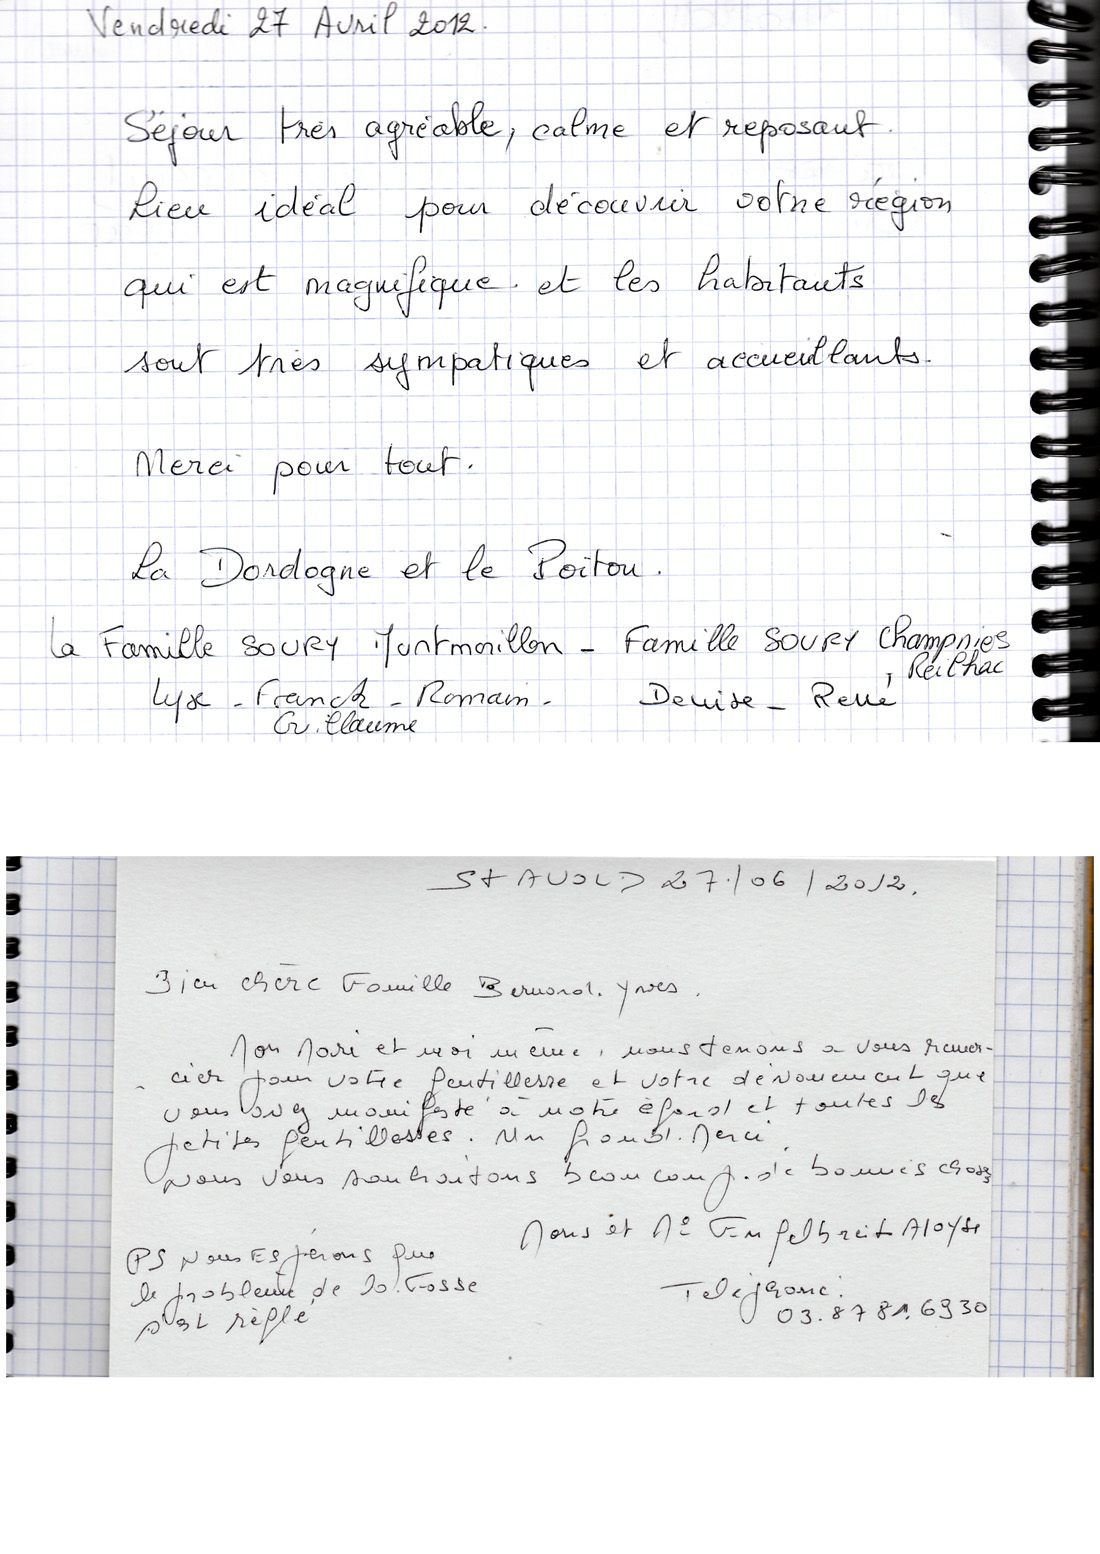 Vendredi 27 Avril 2012.
Séjour très agréable, calme et reposant.
Lieu idéal pour découvrir votre région
qui est magnifique. et les habitants
sont très sympatiques et accueillants.
Merci pour tout.
La Dordogne et le Poitou.
La Famille SOURY Montmorillon - Famille SOURY Champniers
, Reilhac
Lyse - Franck - Romain - Denise - René
Guillaume
St AVOLD 27/06/2012.
Bien chère Famille Bernard. Yves.
Mon Mari et moi même, nous tenons a vous remer-
cier pour votre gentillesse et votre dévouement que
vous avez manifesté à notre égard et toutes les
petites gentillesses. Un grand. Merci.
Nous vous souhaitons beaucoup. de bonnes choses
Mons et Me Engelbreit Aloyse
PS Nous Espérons que
le problème de la Fosse
s'est règlé
Teléphone:
03.87 81.6930